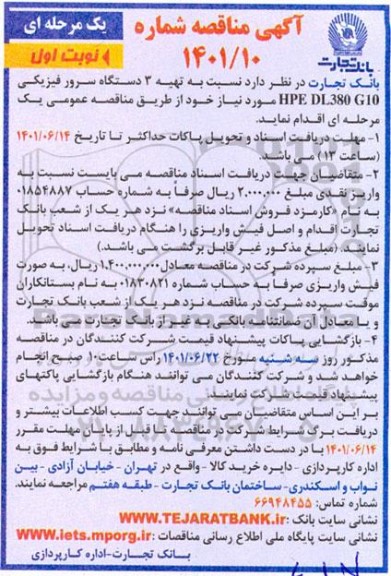 آگهی مناقصه شماره
۱۴۰۱/۱۰
یک مرحله ای
نوبت اول
بانک تجارت
بانک تجارت در نظر دارد نسبت به تهیه ۳ دستگاه سرور فیزیکی
HPE DL380 G10 مورد نیاز خود از طریق مناقصه عمومی یک
مرحله ای اقدام نماید.
۱- مهلت دریافت اسناد و تحویل پاکات حداکثر تا تاریخ ۱۴۰۱/۰۶/۱۴
(ساعت ۱۳) می باشد.
۲- متقاضیان جهت دریافت اسناد مناقصه می بایست نسبت به
واریز نقدی مبلغ ۲،۰۰۰،۰۰۰ ریال صرفاً به شماره حساب ۰۱۸۵۴۸۸۷
به نام «کارمزد فروش اسناد مناقصه» نزد هر یک از شعب بانک
تجارت اقدام و اصل فیش واریزی را هنگام دریافت اسناد تحویل
نمایند. (مبلغ مذکور غیر قابل برگشت می باشد.)
۳- مبلغ سپرده شرکت در مناقصه معادل ۱،۴۰۰،۰۰۰،۰۰۰ ریال، به صورت
فیش واریزی صرفاً به حساب شماره ۰۱۸۳۰۸۲۱ به نام بستانکاران
موقت سپرده شرکت در مناقصه نزد هر یک از شعب بانک تجارت
و یا معادل آن ضمانتنامه بانکی به غیر از بانک تجارت می باشد.
۴- بازگشایی پاکات پیشنهاد قیمت شرکت کنندگان در مناقصه
مذکور روز سه شنبه مورخ ۱۴۰۱/۰۶/۲۲ راس ساعت ۱۰ صبح انجام
خواهد شد و شرکت کنندگان می توانند هنگام بازگشایی پاکتهای
پیشنهاد قیمت شرکت نمایند.
بر این اساس متقاضیان می توانند جهت کسب اطلاعات بیشتر و
دریافت برگ شرایط شرکت در مناقصه تا قبل از پایان مهلت مقرر
۱۴۰۱/۰۶/۱۴ با در دست داشتن معرفی نامه و مطابق با شرایط فوق به
اداره کارپردازی - دایره خرید کالا - واقع در تهران - خیابان آزادی - بین
نواب و اسکندری- ساختمان بانک تجارت - طبقه هفتم مراجعه نمایند.
شماره تماس: ۶۶۹۴۸۴۵۵
نشانی سایت بانک: WWW.TEJARATBANK.ir
نشانی سایت پایگاه ملی اطلاع رسانی مناقصات: www.iets.mporg.ir
بانک تجارت-اداره کارپردازی